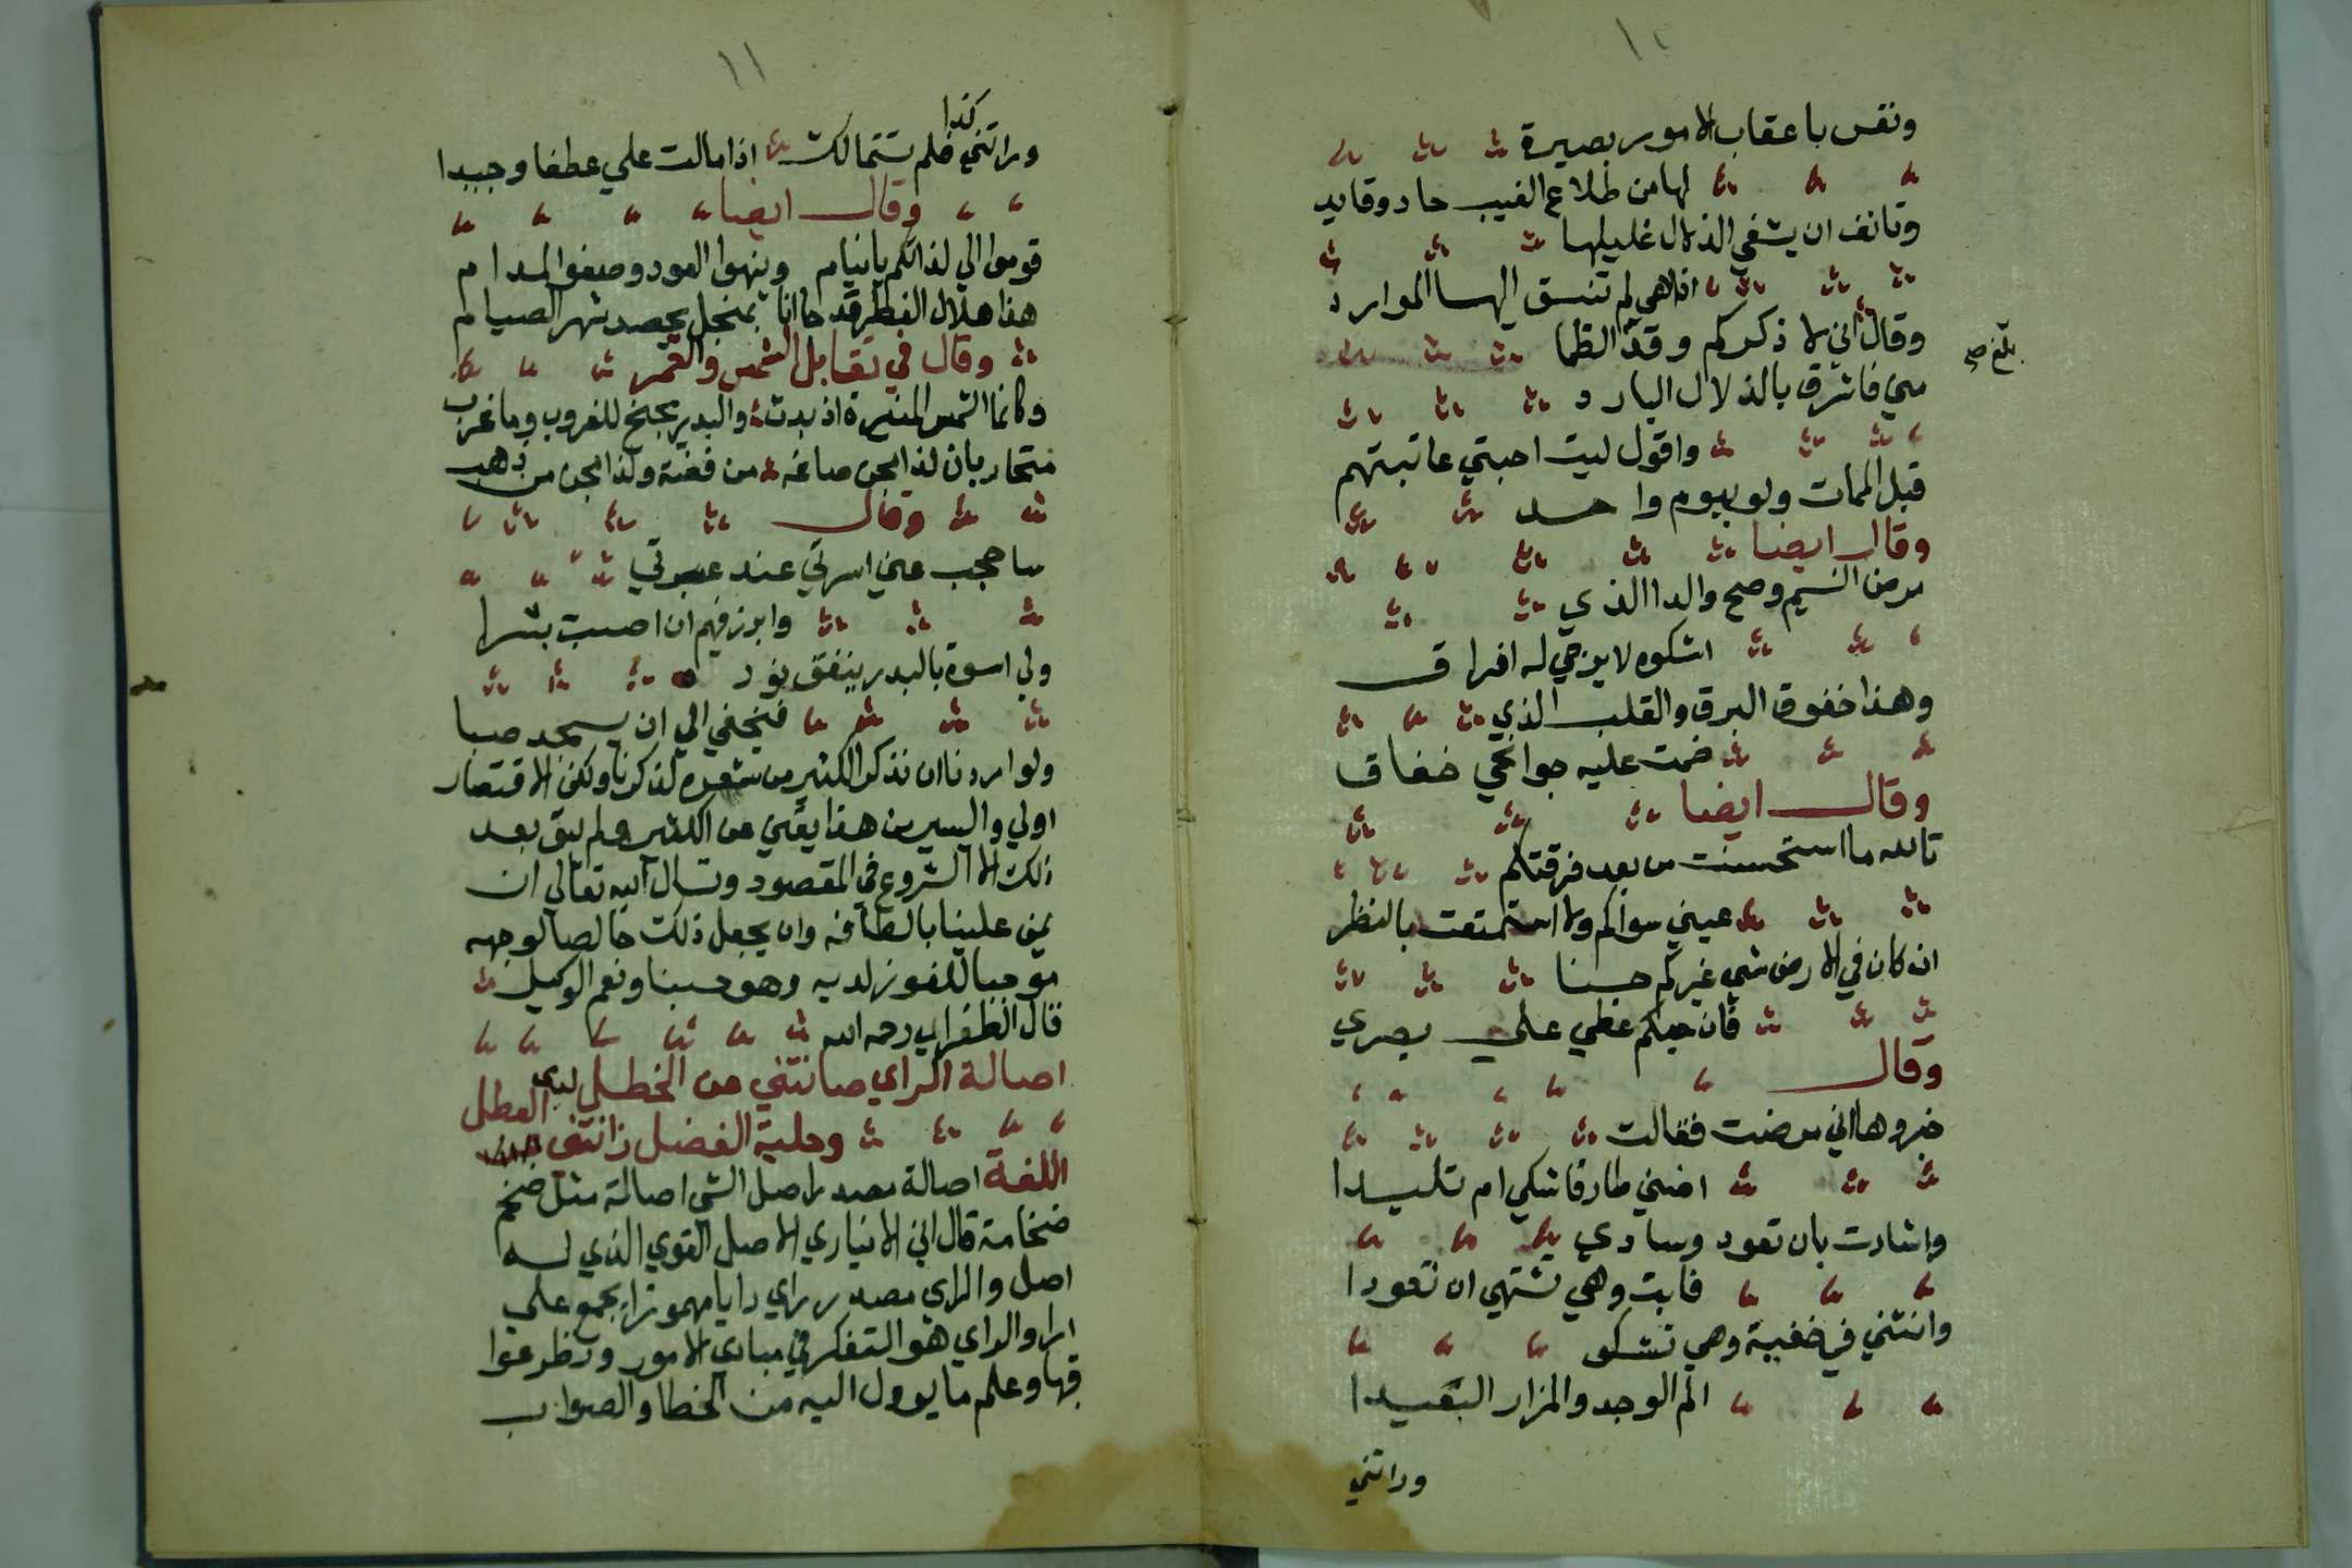 ١٠
ونفس باعقاب الامور بصيرة
لها من طلاع الغيب حاد وقايد
وتانف ان يشفي الذلال غليلها
اذا هي لم تنسق اليها الموارد
وقال اني لا ذكركم وقد الظما
مني فاشرق بالذلال البارد
واقول ليت احبتي عاتبتهم
قبل الممات ولو بيوم واحد
وقال ايضا
مرض النسيم وصح والدا الذي
اشكوه لا يرجي له افراق
وهذا خفوق البرق والقلب الذي
ضمت عليه جوانحي خفاق
وقال ايضا
تالله ما استحسنت من بعد فرقتكم
عيني سواكم ولا استمتعت بالنظر
ان كان في الارض شي غيركم حسنا
فان حبكم غطي علي بصري
وقال
خبروها اني مرضت فقالت
اضني طارقا شكي ام تليدا
واشارت بان تعود وسادي
فابت وهي تشتهي ان تعودا
واتتني في خفية وهي تشكو
الم الوجد والمزار البعيدا
وراتني
بلغ صح
١١
كذا
وراتني فلم تتمالك اذا مالت علي عطفا وجيدا
وقال ايضا
قوموا الي لذاتكم يا نيام وبنهوا العود وصفوا المدام
هذا هلال الفطر قد جاانا بمنجل يحصد شهر الصيام
وقال في تقابل الشمس والقمر
وكانما الشمس المنيرة اذ بدت والبدر يجنح للغروب وما غرب
متحاربان لذا مجن صاغه من فضة ولذا مجن من ذهب
وقال
ساحجب عني اسرتي عند عسرتي
وابرز فيهم ان اصبت بشرا
ولي اسوة بالبدر ينفق نورد
فيخفي الي ان يسمجد صبا
ولو اردنا ان نذكر الكثير من شعره لذكرنا ولكن الاقتصار
اولي واليسير من هذا يغني عن الكثير ولم يبق بعد
ذلك الا الشروع في المقصود ونسال الله تعالي ان
يمن علينا بالطافه وان يجعل ذلك خالصا لوجهه
موجبا للفوز لديه وهو حسبنا ونعم الوكيل
قال الطغراي رحمه الله
اصالة الراي صانتني عن الخطل
وحلية الفضل زانتني لدي العطل
اللغة اصالة مصدر اصل الشي اصالة مثل ضخم
ضخامة قال ابن الانباري الاصل القوي الذي له
اصل والراي مصدر راي رايا مهموزا يجمع علي
ارا والراي هو التفكر في مبادي الامور ونظر عوا
قبها وعلم ما يوول اليه من الخطا والصواب